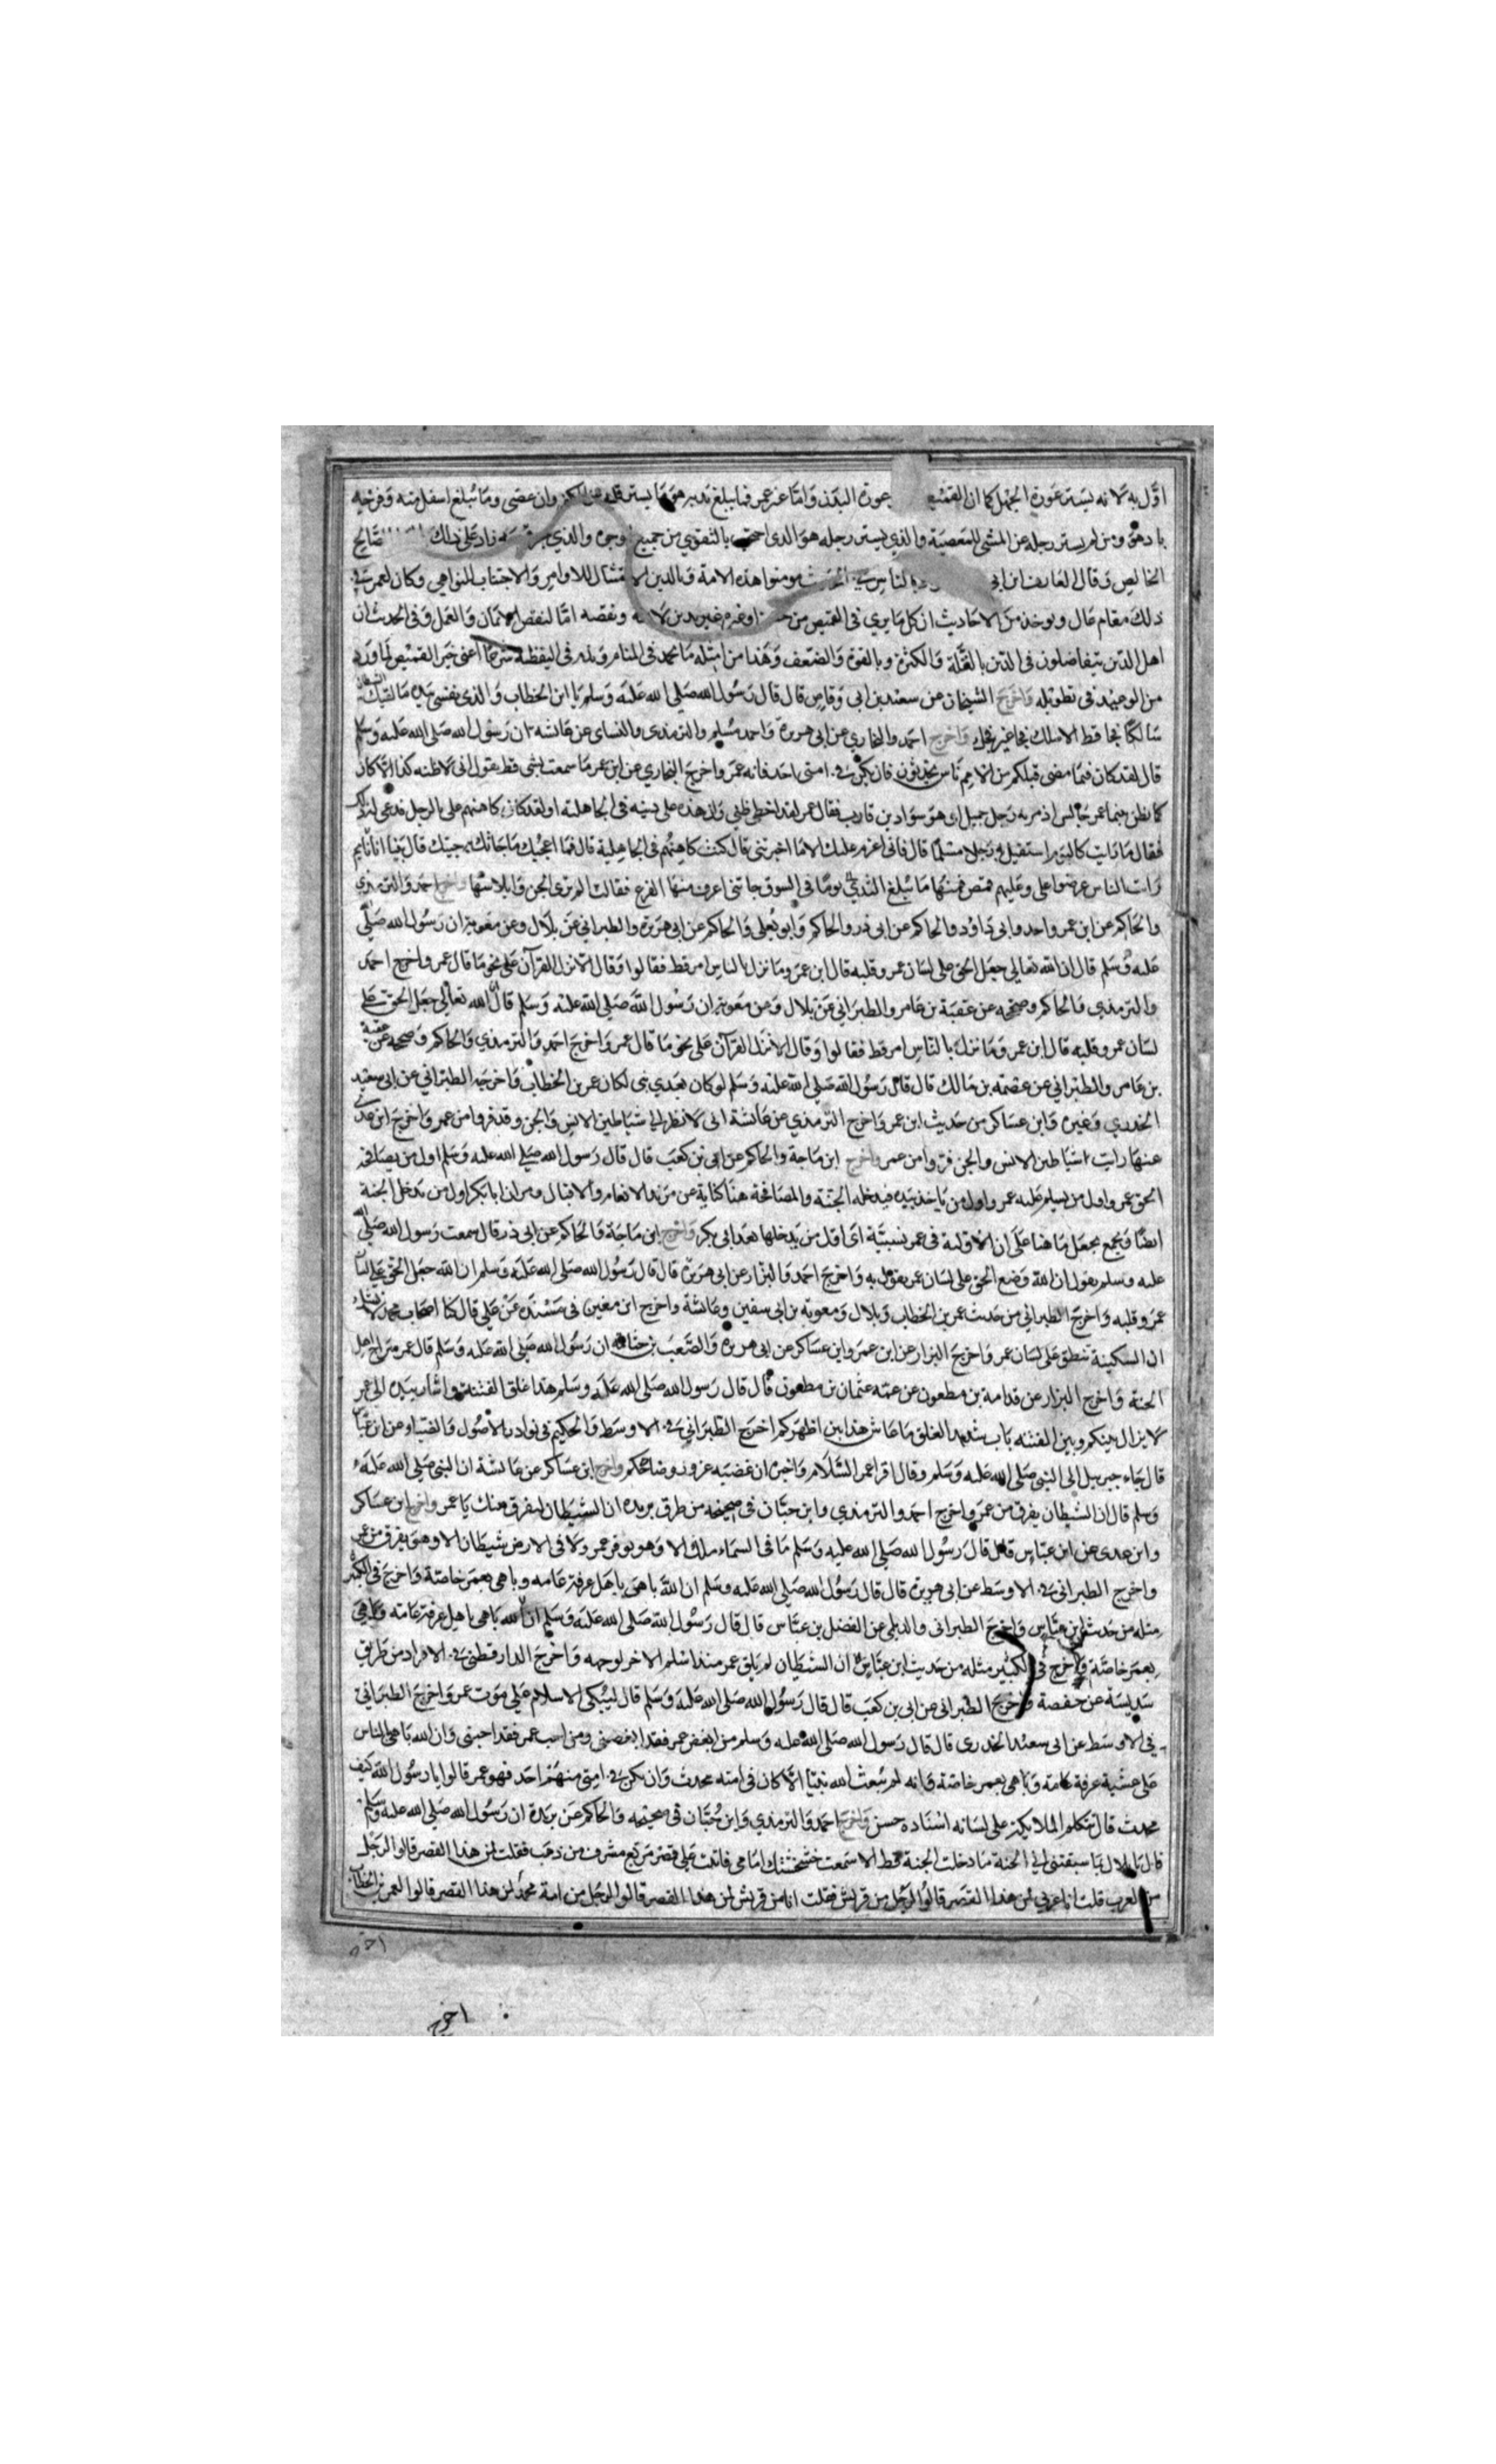 اوّل به لانه يستر عورة الجهل كما ان القميص عورة البدن وامّا غير عمر فما يبلغ ثديه هو ما يستر قلبه عن الكفر وان عصى وما يبلغ اسفل منه وفرجه
باد هو ومن لم يستر رجله عن المشي للمعصية والذي يستر رجله هو الذى احتجب بالتقوى من جميع الوجوه والذي زاد على ذلك صالح
الخالص وقال العارف ابن ابى بالناس فى الحديث مومنوا هذه الامة وبالدين الامتثال للاوامر والاجتناب للنواهي وكان لعمر فى
ذلك مقام عال ويوخذ من الاحاديث ان كل ما يرى فى القميص من ونقصه امّا لنقص الايمان والعمل وفى الحديث ان
اهل الدّين يتفاضلون فى الدّين بالقلّة والكثرة وبالقوة والضعف وهذا من امثله ما يحمد فى المنام ويذم فى اليقظة شرعا اعنى جر القميص لما ورد
من الوعيد فى تطويله واخرج الشيخان عن سعد بن ابى وقاص قال قال رسول الله صلى الله عليه وسلم يا ابن الخطاب والذى نفسى بيده ما لقيك الشيطان
سالكا فجا قط الا سلك فجا غير فجك واخرج احمد والبخاري عن ابى هريرة واحمد ومسلم والترمذى والنساى عن عائشه ان رسول الله صلى الله عليه وسلم
قال لقد كان فيما مضى قبلكم من الامم ناس محدثون فان يكن فى امتى احد فانه عمر واخرج البخاري عن ابن عمر ما سمعت لشى قط يقول انى لاظنه كذا الا كان
كما يظن بينما عمر جالس اذ مر به رجل جميل اى هو سواد بن قارب فقال عمر لقد اخطى ظني وان هذا على دينه فى الجاهلية او لقد كان كاهنهم على بالرجل فدعى له
فقال ما رايت كاليوم استقبل به رجلا مسلما قال فانى اعزم عليك الا ما اخبرتنى قال كنت كاهنهم فى الجاهلية قال فما اعجبك ما جاتك به جنيتك قال بينا انا نايم
رايت الناس عرضوا على وعليهم قمص فمنها ما يبلغ الثدى يوما فى السوق جاتنى اعرف منها الفزع فقالت الم ترى الجن وابلاسها واخرج احمد والترمذي
والحاكم عن ابن عمر واحمد وابى داود والحاكم عن ابى ذر والحاكم وابو يعلى والحاكم عن ابى هريرة والطبراني عن بلال وعن معوية ان رسول الله صلى
عليه وسلم قال ان الله تعالى جعل الحق على لسان عمر وقلبه قال ابن عمر وما نزل بالناس امر قط فقالوا وقال الا نزل القرآن على نحو ما قال عمر واخرج احمد
والترمذي والحاكم وصححه عن عقبة بن عامر والطبراني عن بلال وعن معوية ان رسول الله صلى الله عليه وسلم قال ان الله تعالى جعل الحق على
لسان عمر وقلبه قال ابن عمر وما نزل بالناس امر قط فقالوا وقال الا نزل القرآن على نحو ما قال عمر واخرج احمد والترمذي والحاكم وصححه عن عقبة
بن عامر والطبراني عن عصمه بن مالك قال قال رسول الله صلى الله عليه وسلم لو كان بعدي نبى لكان عمر بن الخطاب واخرجه الطبراني عن ابى سعيد
الخدري وغيره وابن عساكر من حديث ابن عمر واخرج الترمذي عن عائشة انى لانظر الى شياطين الانس والجن وقد فروا من عمر واخرج ابن عدى
عنها رايت شياطين الانس والجن فروا من عمر واخرج ابن ماجة والحاكم عن ابى بن كعب قال قال رسول الله صلى الله عليه وسلم اول من يصافحه
الحق عمر واول من يسلم عليه عمر واول من ياخذ بيده فيدخله الجنة والمصافحة هنا كناية عن مزيد الانعام والاقبال ومر ان ابا بكر اول من يدخل الجنة
ايضا ويجمع بجعل ما هنا على ان الاولية فى عمر نسبية اى اول من يدخلها بعد ابى بكر واخرج ابن ماجة والحاكم عن ابى ذر قال سمعت رسول الله صلى الله
عليه وسلم يقول ان الله وضع الحق على لسان عمر يقول به واخرج احمد والبزار عن ابى هريرة قال قال رسول الله صلى الله عليه وسلم ان الله جعل الحق على لسان
عمر وقلبه واخرج الطبراني من حديث عمر بن الخطاب وبلال ومعوية بن ابى سفين وعائشة واخرج ابن مغين فى مسنده عن على قال كنا اصحاب محمد لا نشك
ان السكينة تنطق على لسان عمر واخرج البزار عن ابن عمر وابن عساكر عن ابى هريره والصعب بن جثامه ان رسول الله صلى الله عليه وسلم قال عمر سراج اهل
الجنة واخرج البزار عن قدامة بن مظعون عن عمه عثمان بن مظعون قال قال رسول الله صلى الله عليه وسلم هذا غلق الفتنة واشار بيده الى عمر
لا يزال بينكم وبين الفتنه باب شديد الغلق ما عاش هذا بين اظهركم اخرج الطبراني فى الاوسط والحكيم فى نوادر الاصول والضياء عن ابن عباس
قال جاء جبريل الى النبى صلى الله عليه وسلم وقال اقرا عمر السلام واخبره ان غضبه عز ورضاه حكم واخرج ابن عساكر عن عائشة ان النبى صلى الله عليه
وسلم قال ان الشيطان يفرق من عمر واخرج احمد والترمذي وابن حبان فى صحيحه من طرق بريده ان الشيطان ليفرق منك يا عمر واخرج ابن عساكر
وابن عدى عن ابن عباس قال قال رسول الله صلى الله عليه وسلم ما فى السماء ملك الا وهو يوقر عمر ولا فى الارض شيطان الا وهو يفرق من عمر
واخرج الطبرانى فى الاوسط عن ابى هريرة قال قال رسول الله صلى الله عليه وسلم ان الله باهى باهل عرفة عامه وباهى بعمر خاصة واخرج فى الكبير
مثله من حديث ابن عباس واخرج الطبرانى والديلمى عن الفضل بن عباس قال قال رسول الله صلى الله عليه وسلم ان الله باهى باهل عرفة عامه وباهى
بعمر خاصة واخرج فى الكبير مثله من حديث ابن عباس ان الشيطان لم يلق عمر منذ اسلم الا خر لوجهه واخرج الدارقطنى فى الافراد من طريق
سديسة عن حفصة واخرج الطبرانى عن ابى بن كعب قال قال رسول الله صلى الله عليه وسلم قال ليبكى الاسلام على موت عمر واخرج الطبراني
فى الاوسط عن ابى سعيد الخدرى قال قال رسول الله صلى الله عليه وسلم من ابغض عمر فقد ابغضنى ومن احب عمر فقد احبنى وان الله باهى الناس
على عشية عرفة عامة وباهى بعمر خاصة وانه لم يبعث الله نبيا الا كان فى امته محدث وان يكن فى امتى منهم احد فهو عمر قالوا يا رسول الله كيف
محدث قال تتكلم الملايكة على لسانه اسناده حسن واخرج احمد والترمذي وابن حبان فى صحيحه والحاكم عن بريدة ان رسول الله صلى الله عليه وسلم
قال يا بلال بما سبقتنى الى الجنة ما دخلت الجنة قط الا سمعت خشخشتك امامى فاتيت على قصر مربع مشرف من ذهب فقلت لمن هذا القصر قالوا لرجل
من العرب قلت انا عربي لمن هذا القصر قالوا لرجل من قريش فقلت انا من قريش لمن هذا القصر قالوا لرجل من امة محمد لمن هذا القصر قالوا لعمر بن الخطاب
اخرج